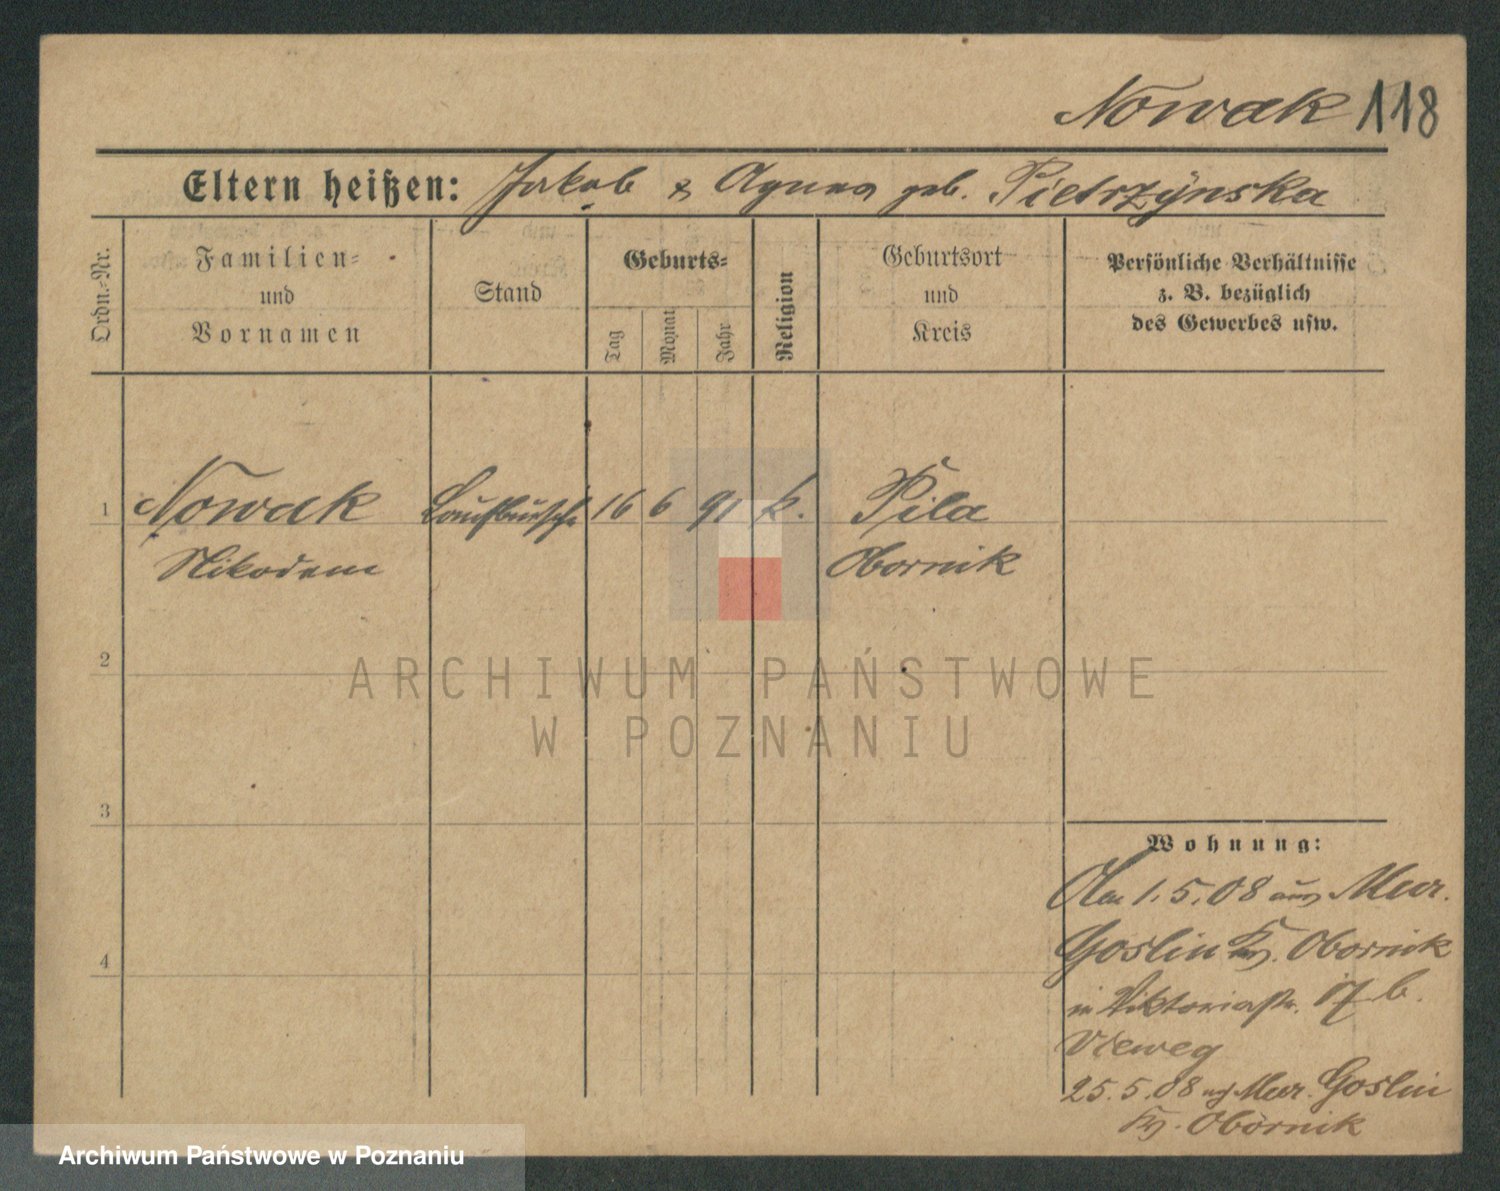 Nowak 118
Eltern heißen: Jakob & Agnes geb. Pietrzynska
Ordn.-Nr.
Familien-
und
Vornamen
Stand
Geburts-
Tag
Monat
Jahr
Religion
Geburtsort
und
Kreis
Persönliche Verhältnisse
z. B. bezüglich
des Gewerbes usw.
1 Nowak Laufbursche 16 6 91 k. Pila
Nikodem Obornik
2
ARCHIWUM PAŃSTWOWE
W POZNANIU
3
Wohnung:
1.5.08 aus Mur.
Goslin Kr. Obornik
4
in Viktoriastr. 17 b.
Vieweg
25.5.08 Mur. Goslin
Kr. Obornik
Archiwum Państwowe w Poznaniu